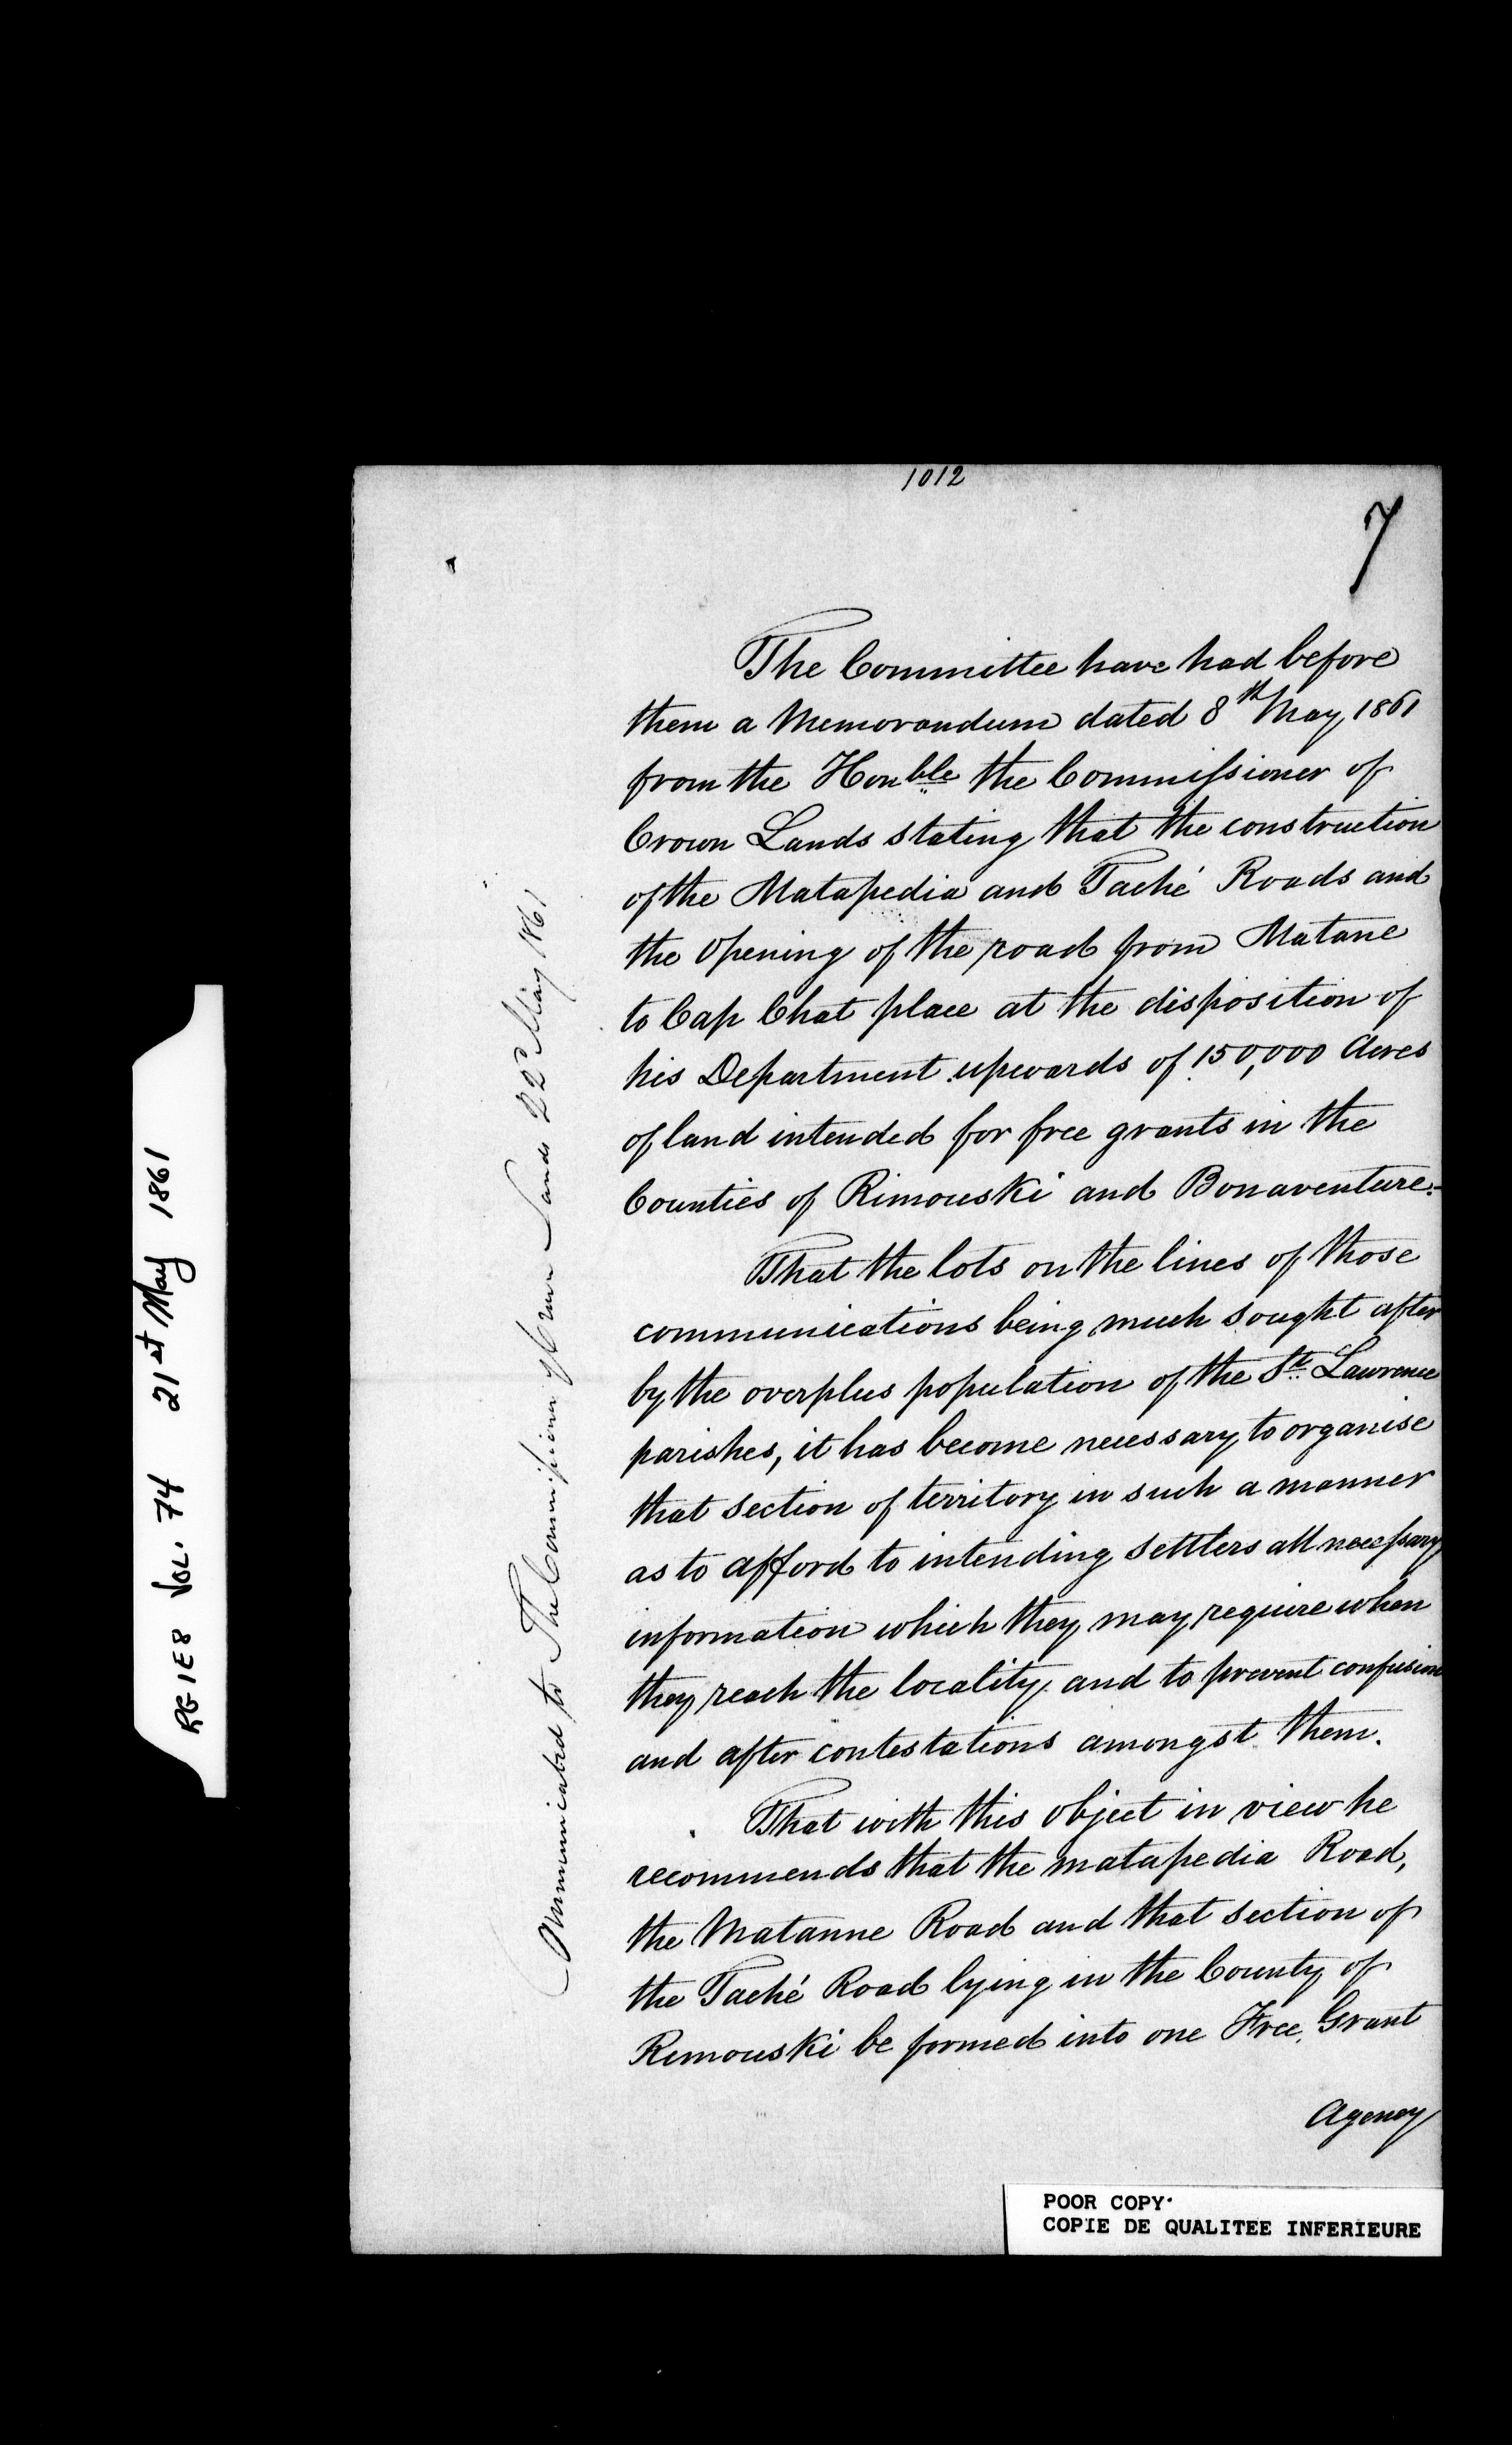 1012
7
The Committee have had before
them a Memorandum dated 8th May 1861
from the Honble the Commissioner of
Crown Lands stating that the construction
of the Matapedia and Taché Roads and
the Opening of the road from Matane
to Cap Chat place at the disposition of
his Department upwards of 150,000 Acres
of land intended for free grants in the
Counties of Rimouski and Bonaventure.-
That the lots on the lines of those
communications being much sought after
by the overplus population of the St. Lawrence
parishes, it has become necessary to organise
that section of territory in such a manner
as to afford to intending Settlers all necessary
information which they may require when
they reach the locality and to prevent confusion
and after contestations amongst them.
That with this object in view he
recommends that the matapedia Road,
the Matanne Road and that section of
the Taché Road lying in the County of
Rimouski be formed into one Free Grant
Agency
Communicated to The Commissioner of Crown Lands 22d May 1861
RG 1 E8 VOL. 74 21st May 1861
POOR COPY
COPIE DE QUALITEE INFERIEURE